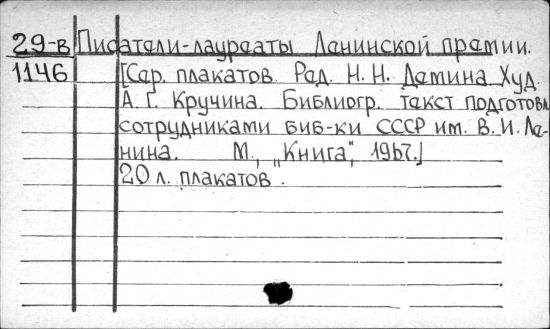 29-в Писатели-лауреаты Ленинской премии.
1146 [Сер. плакатов. Ред. Н. Н. Демина. Худ.
А. Г. Кручина. Библиогр. текст подготовл.
сотрудниками биб-ки СССР им. В. И. Ле-
нина. М., „Книга", 1967.]
20 л. плакатов.